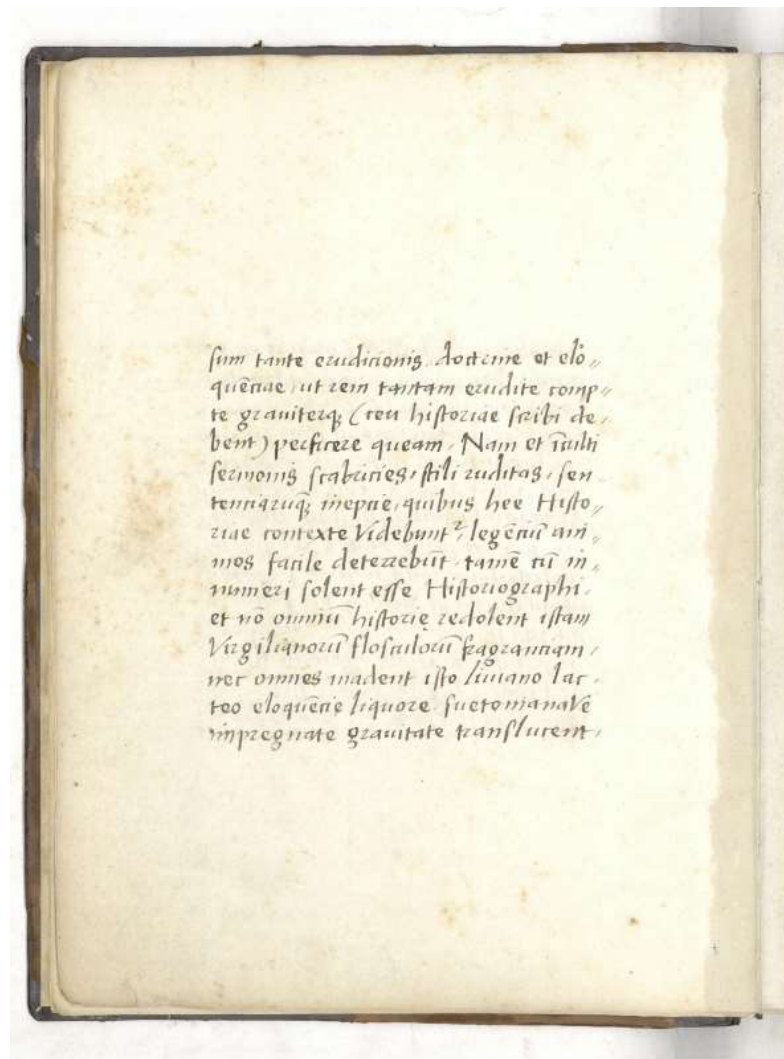 sum tante erudicionis doctrine et elo„
quēciae, ut rem tantam erudite comp„
te grauiterq; (ceu historiae scribi de„
bent) perficere queam, Nam et īculti
sermonis scabricies, stili ruditas, sen
tenciarūq; ineptie, quibus hee Histo„
riae contexte Videbunt², legēciū ani„
mos facile deterrebūt, tamē cū in„
numeri solent esse Historiographi,
et nō omniū historię redolent istam
Virgilianorū flosculorū fragranciam,
nec omnes madent isto liuiano lac„
teo eloquēcie liquore, suetonianaVē
impregnate grauitate translucent,